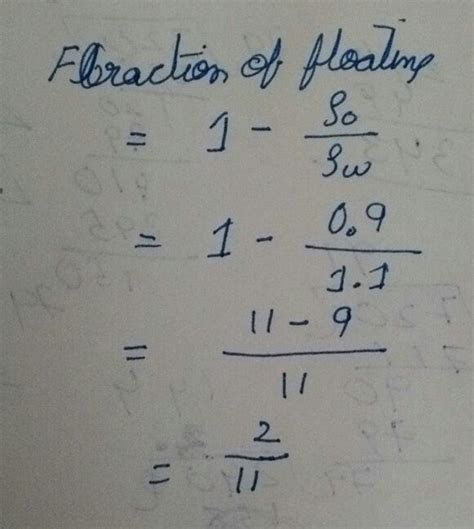 Fraction of floating
= 1 - ρo/ρw
= 1 - 0.9/1.1
= 11 - 9/11
= 2/11